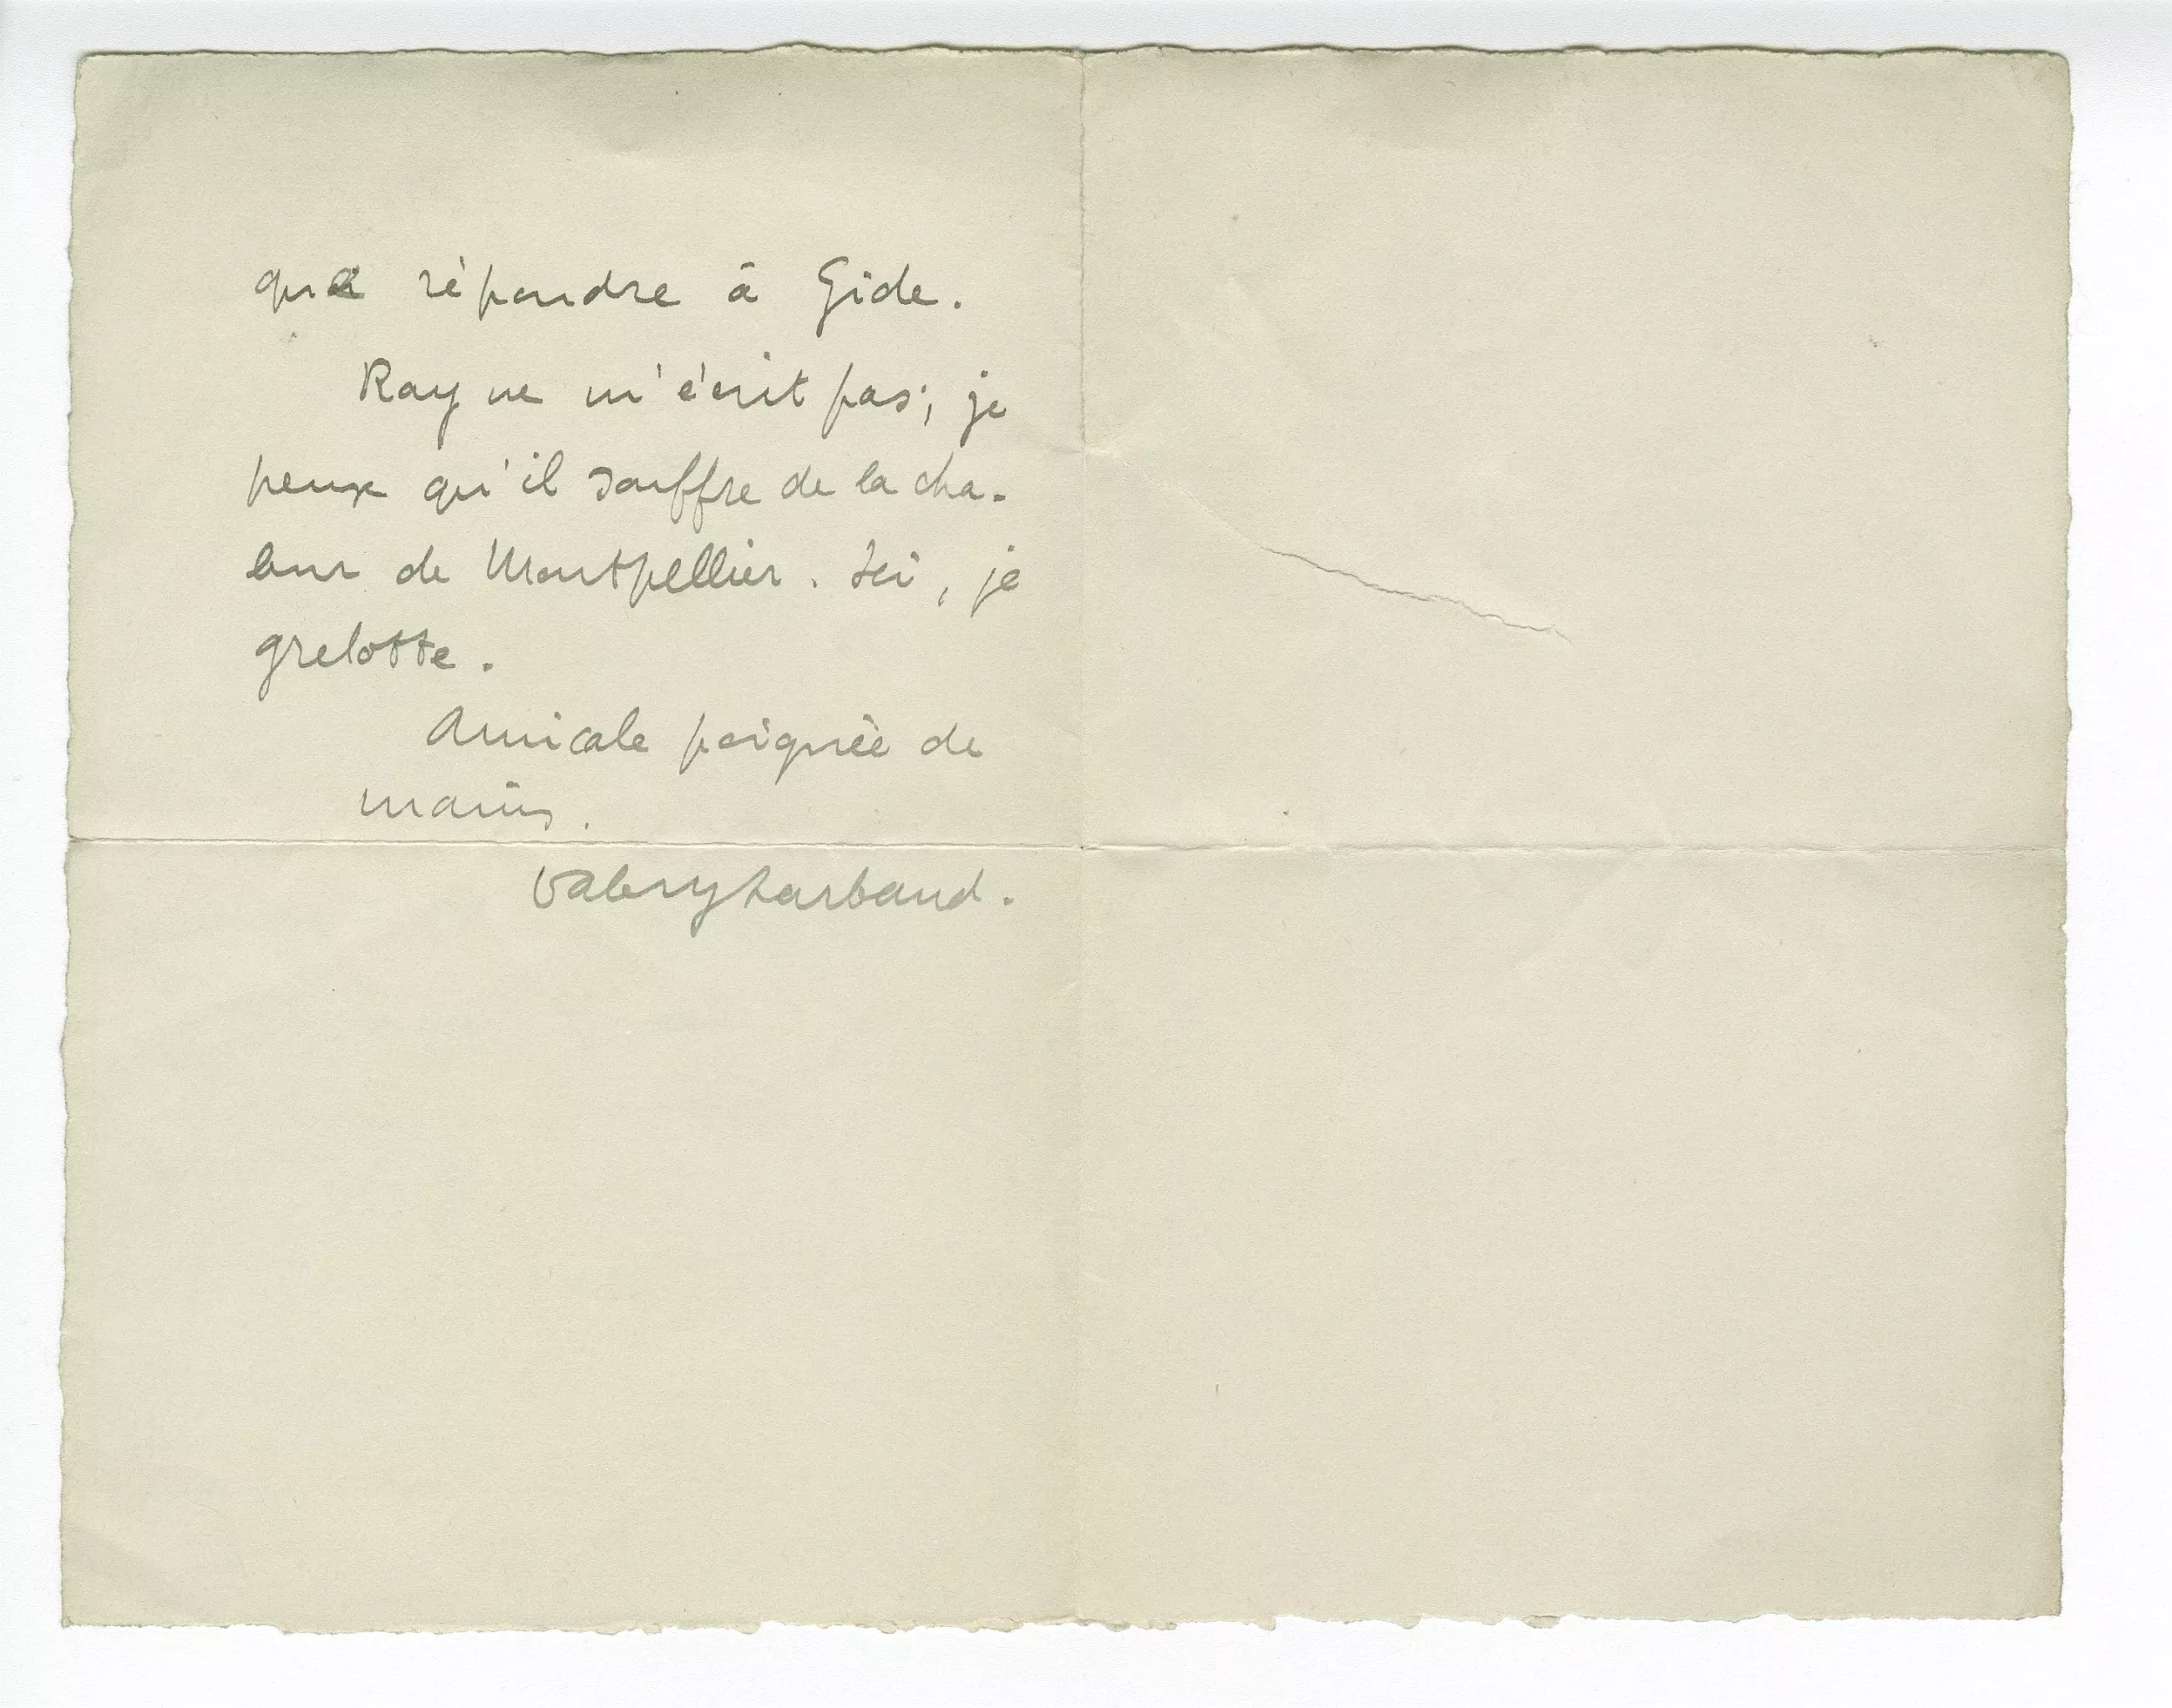 que répondre à Gide.
Ray ne m'écrit pas; je
peux qu'il souffre de la cha-
leur de Montpellier. Ici, je
grelotte.
Amicale poignée de
mains.
Valery Larbaud.